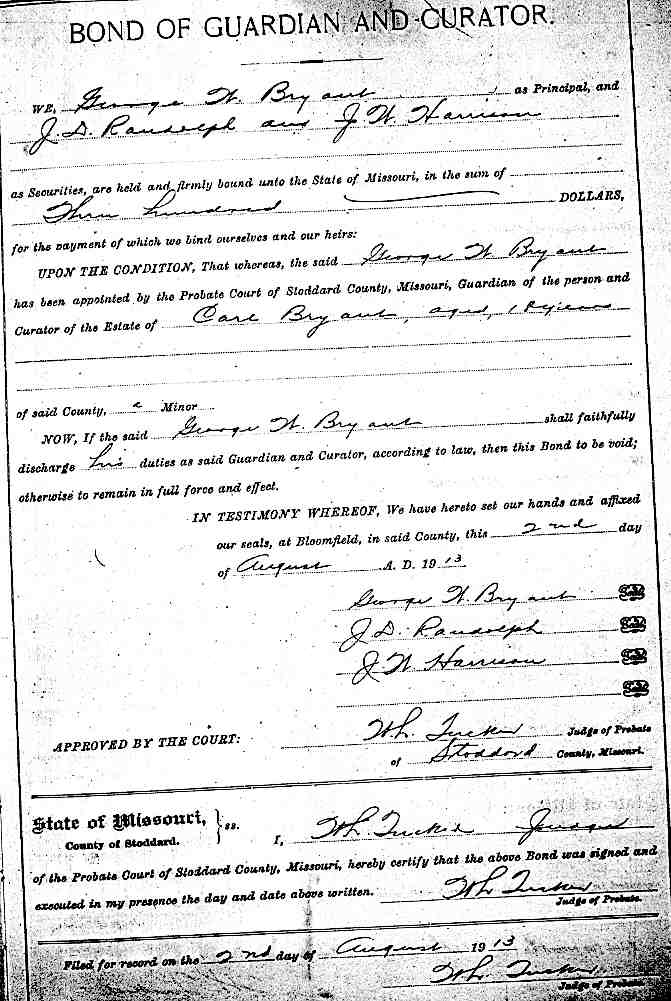 BOND OF GUARDIAN AND CURATOR.
WE, George W. Bryant, as Principal, and
J. D. Randolph and J. W. Harrison
as Securities, are held and firmly bound unto the State of Missouri, in the sum of
Three hundred DOLLARS,
for the payment of which we bind ourselves and our heirs:
UPON THE CONDITION, That whereas, the said George W. Bryant
has been appointed by the Probate Court of Stoddard County, Missouri, Guardian of the person and
Curator of the Estate of Carl Bryant, aged, years
of said County, a Minor
NOW, If the said George W. Bryant shall faithfully
discharge his duties as said Guardian and Curator, according to law, then this Bond to be void;
otherwise to remain in full force and effect.
IN TESTIMONY WHEREOF, We have hereto set our hands and affixed
our seals, at Bloomfield, in said County, this 2nd day
of August A. D. 1913
George W. Bryant Seal
J. D. Randolph Seal
J. W. Harrison Seal
Seal
APPROVED BY THE COURT: Wh. Tucker Judge of Probate
of Stoddard County, Missouri.
State of Missouri, } ss.
County of Stoddard.
I, Wh. Tucker Judge
of the Probate Court of Stoddard County, Missouri, hereby certify that the above Bond was signed and
executed in my presence the day and date above written. Wh Tucker
Judge of Probate.
Filed for record on the 2nd day of August 1913
Wh Tucker
Judge of Probate.